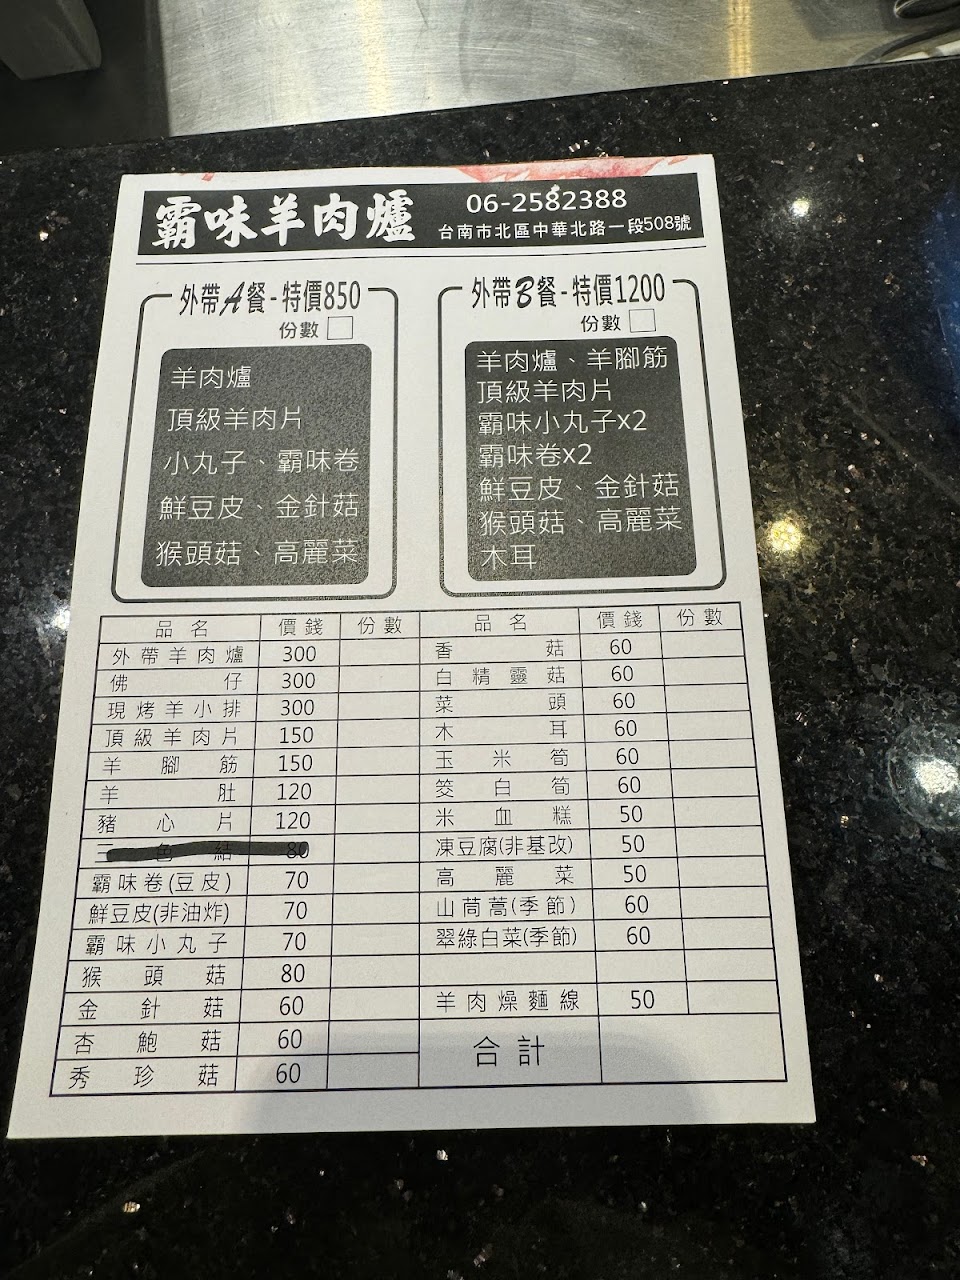 霸味羊肉爐
06-2582388
台南市北區中華北路一段508號
外帶A餐-特價850
份數
羊肉爐
頂級羊肉片
小丸子、霸味卷
鮮豆皮、金針菇
猴頭菇、高麗菜
外帶B餐-特價1200
份數
羊肉爐、羊腳筋
頂級羊肉片
霸味小丸子x2
霸味卷x2
鮮豆皮、金針菇
猴頭菇、高麗菜
木耳
品名 價錢 份數
外帶羊肉爐 300
佛仔 300
現烤羊小排 300
頂級羊肉片 150
羊腳筋 150
羊肚 120
豬心片 120
三色結 80
霸味卷(豆皮) 70
鮮豆皮(非油炸) 70
霸味小丸子 70
猴頭菇 80
金針菇 60
杏鮑菇 60
秀珍菇 60
品名 價錢 份數
香菇 60
白精靈菇 60
菜頭 60
木耳 60
玉米筍 60
筊白筍 60
米血糕 50
凍豆腐(非基改) 50
高麗菜 50
山茼蒿(季節) 60
翠綠白菜(季節) 60
羊肉燥麵線 50
合計